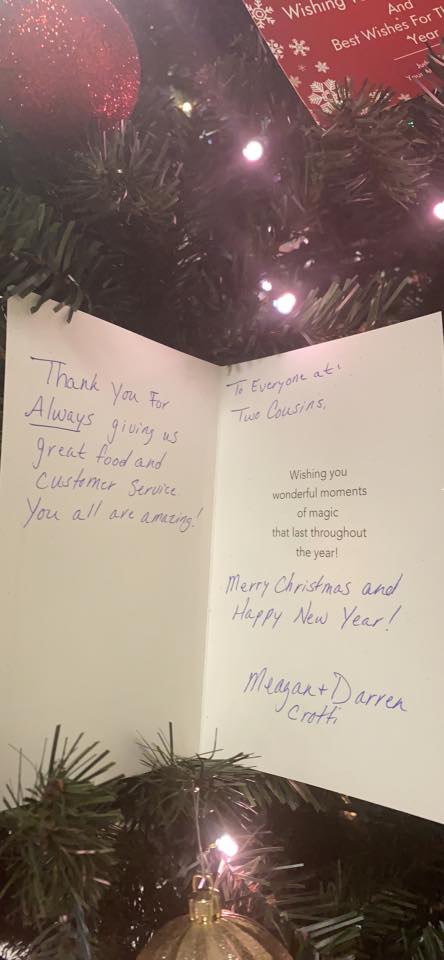 Wishing
And
Best Wishes For
Year
Thank You For
Always giving us
great food and
customer service
You all are amazing!
To Everyone at:
Two Cousins,
Wishing you
wonderful moments
of magic
that last throughout
the year!
Merry Christmas and
Happy New Year!
Meagan + Darren
Crotti